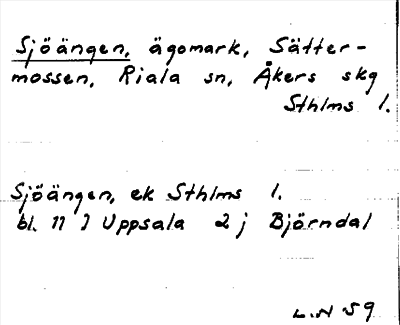 Sjöängen, ägomark, Sätter-
mossen, Riala sn, Åkers skg
Sthlms l.
Sjöängen, ek Sthlms l.
bl. 11 I Uppsala 2 j Björndal
L.N 59